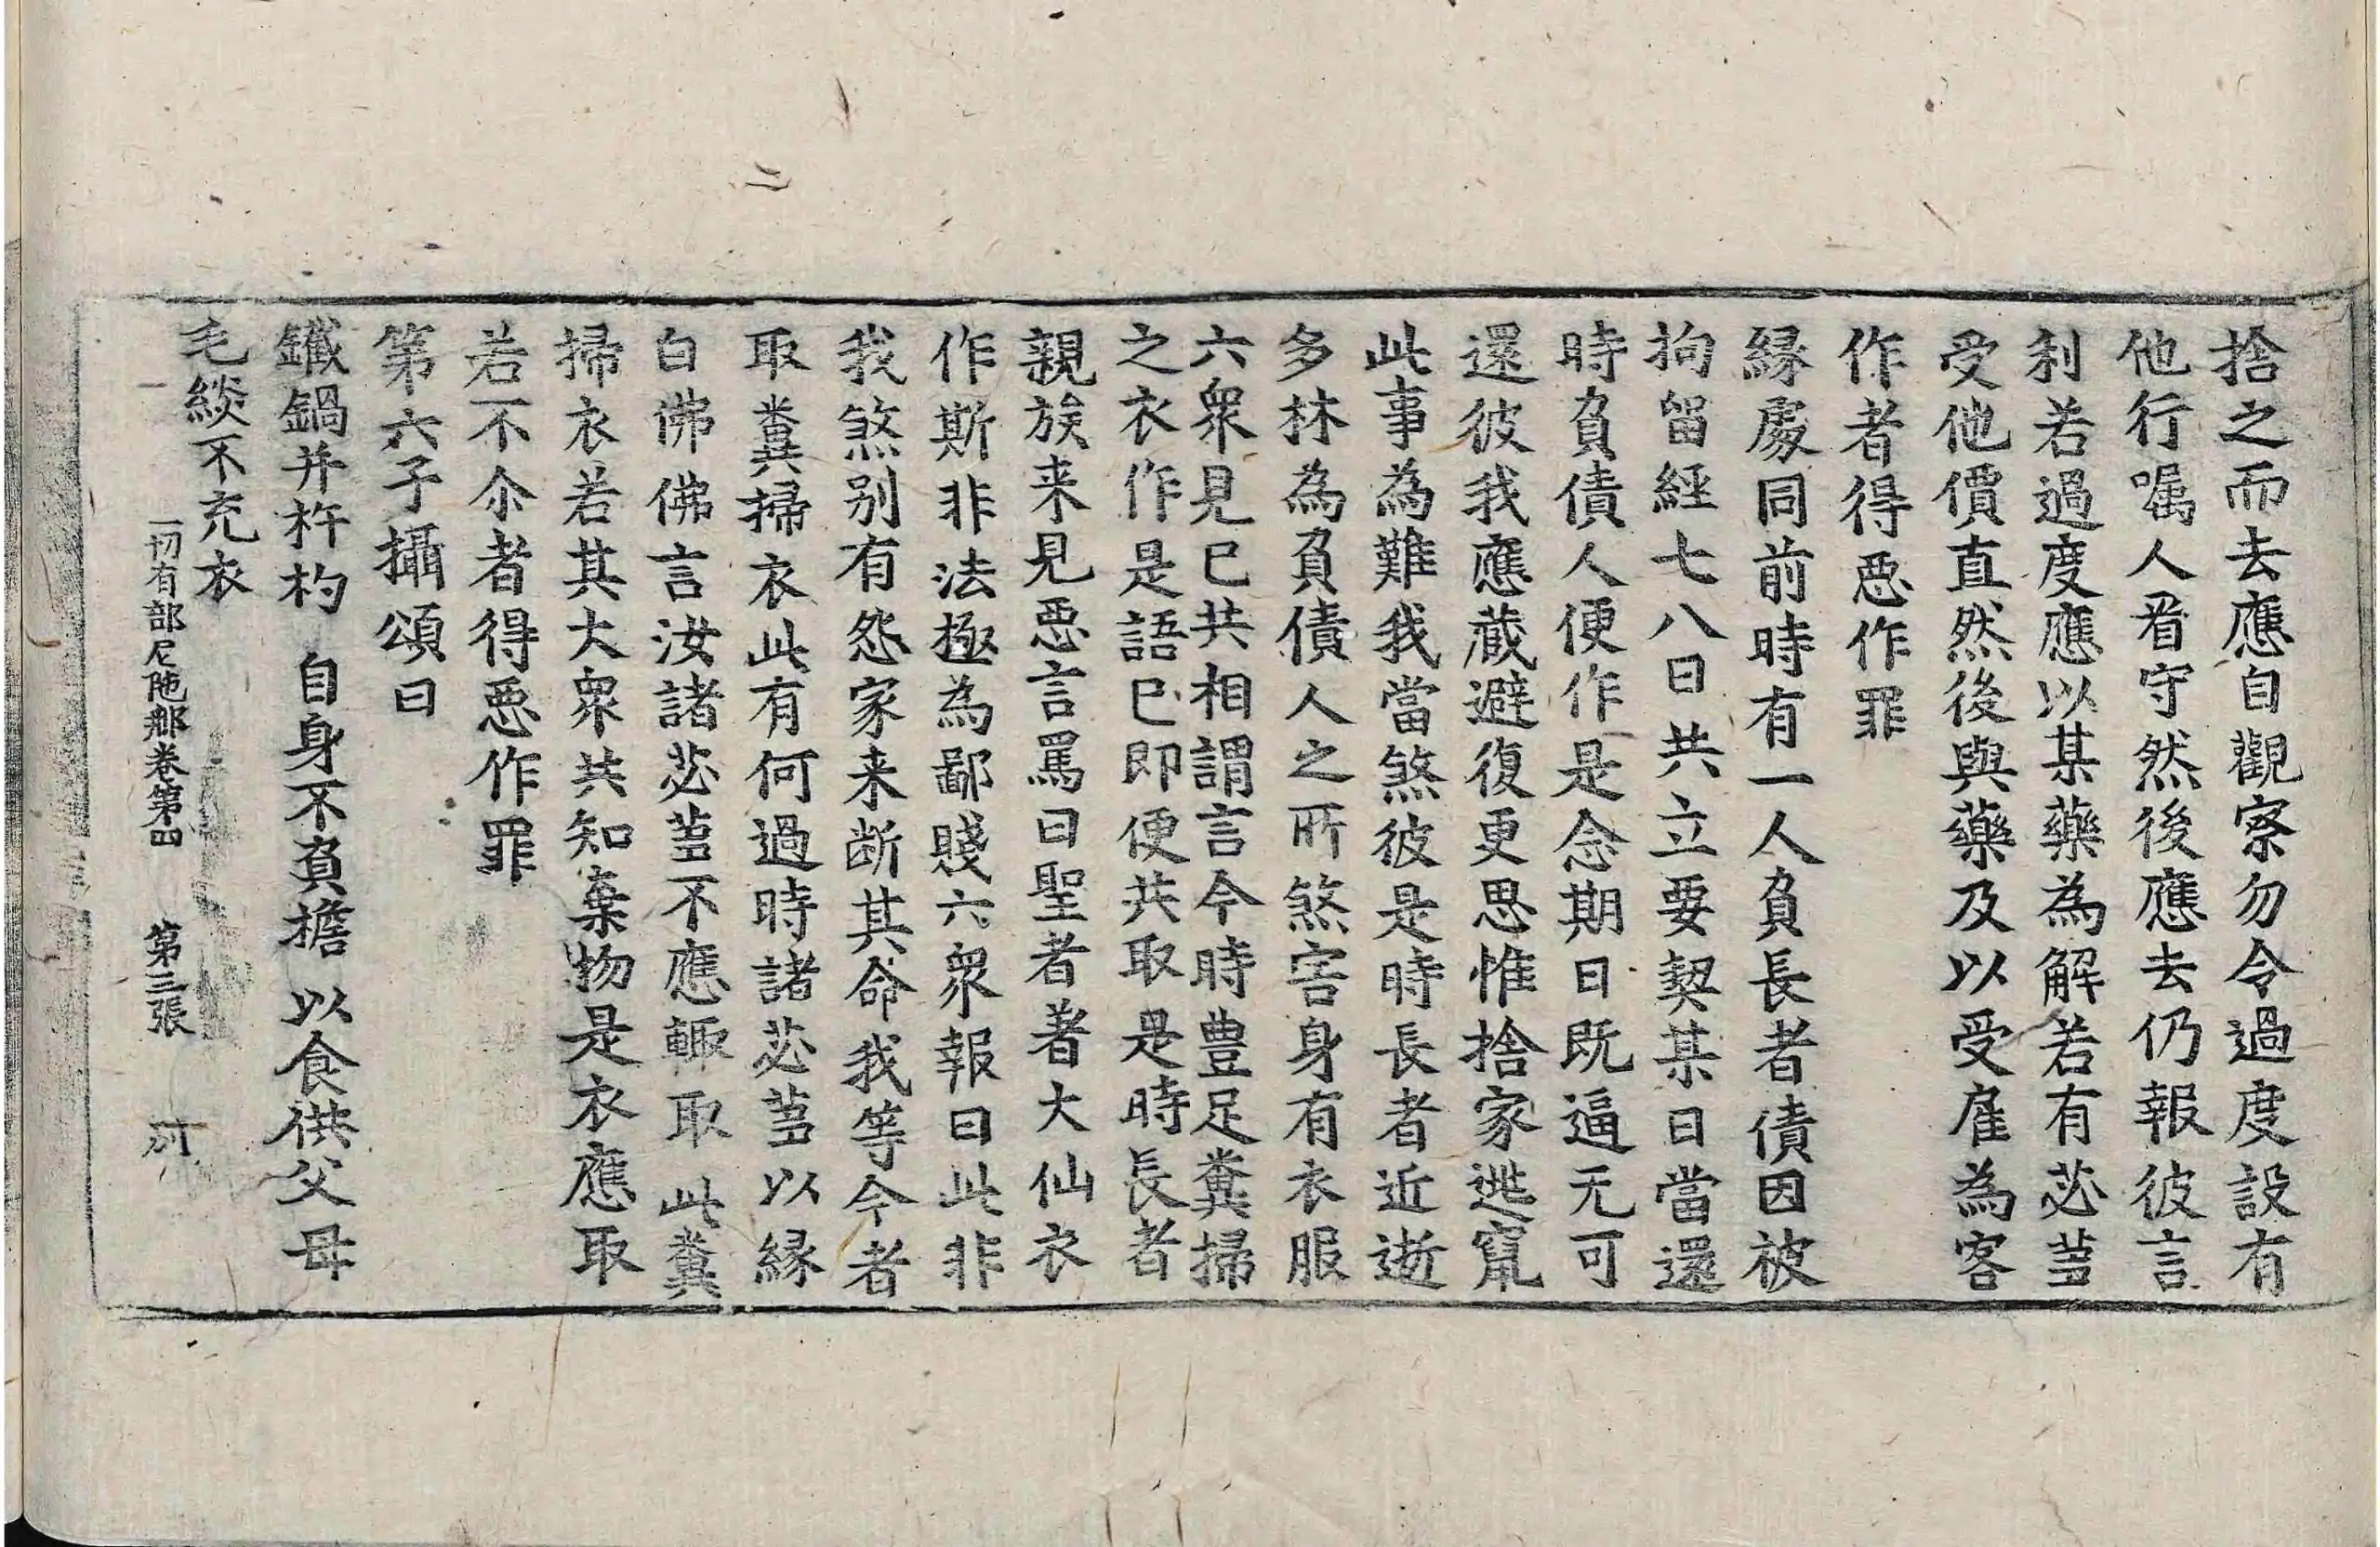 捨之而去應自觀察勿令過度設有
他行嘱人看守然後應去仍報彼言
利若過度應以某藥為解若有苾芻
受他價直然後與藥及以受雇為客
作者得惡作罪
緣處同前時有一人負長者債因被
拘留經七八日共立要契某日當還
時負債人便作是念期日既逼无可
還彼我應藏避復更思惟捨家逃竄
此事為難我當煞彼是時長者近逝
多林為負債人之所煞害身有衣服
六衆見已共相謂言今時豊足糞掃
之衣作是語已即便共取是時長者
親族来見惡言罵曰聖者著大仙衣
作斯非法極為鄙賤六衆報曰此非
我煞别有怨家来断其命我等今者
取糞掃衣此有何過時諸苾芻以緣
白佛佛言汝諸苾芻不應輙取此糞
掃衣若其大衆共知棄物是衣應取
若不尒者得惡作罪
第六子攝頌曰
鐵鍋并杵杓 自身不負擔 以食供父母
毛緂不充衣
一切有部尼陁那卷第四 第三張
二